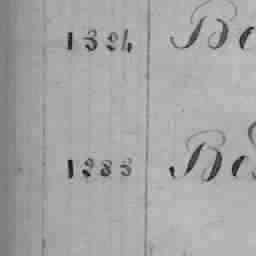 1324 Be
1283 Be